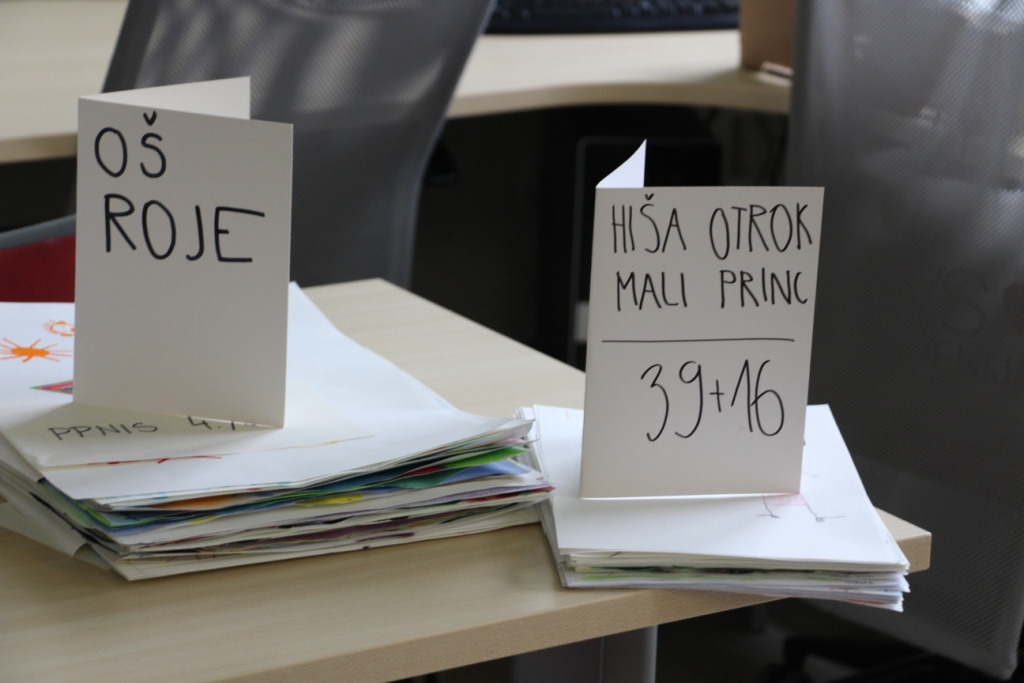 OŠ
ROJE
PPNIS 4.
HIŠA OTROK
MALI PRINC
39+16